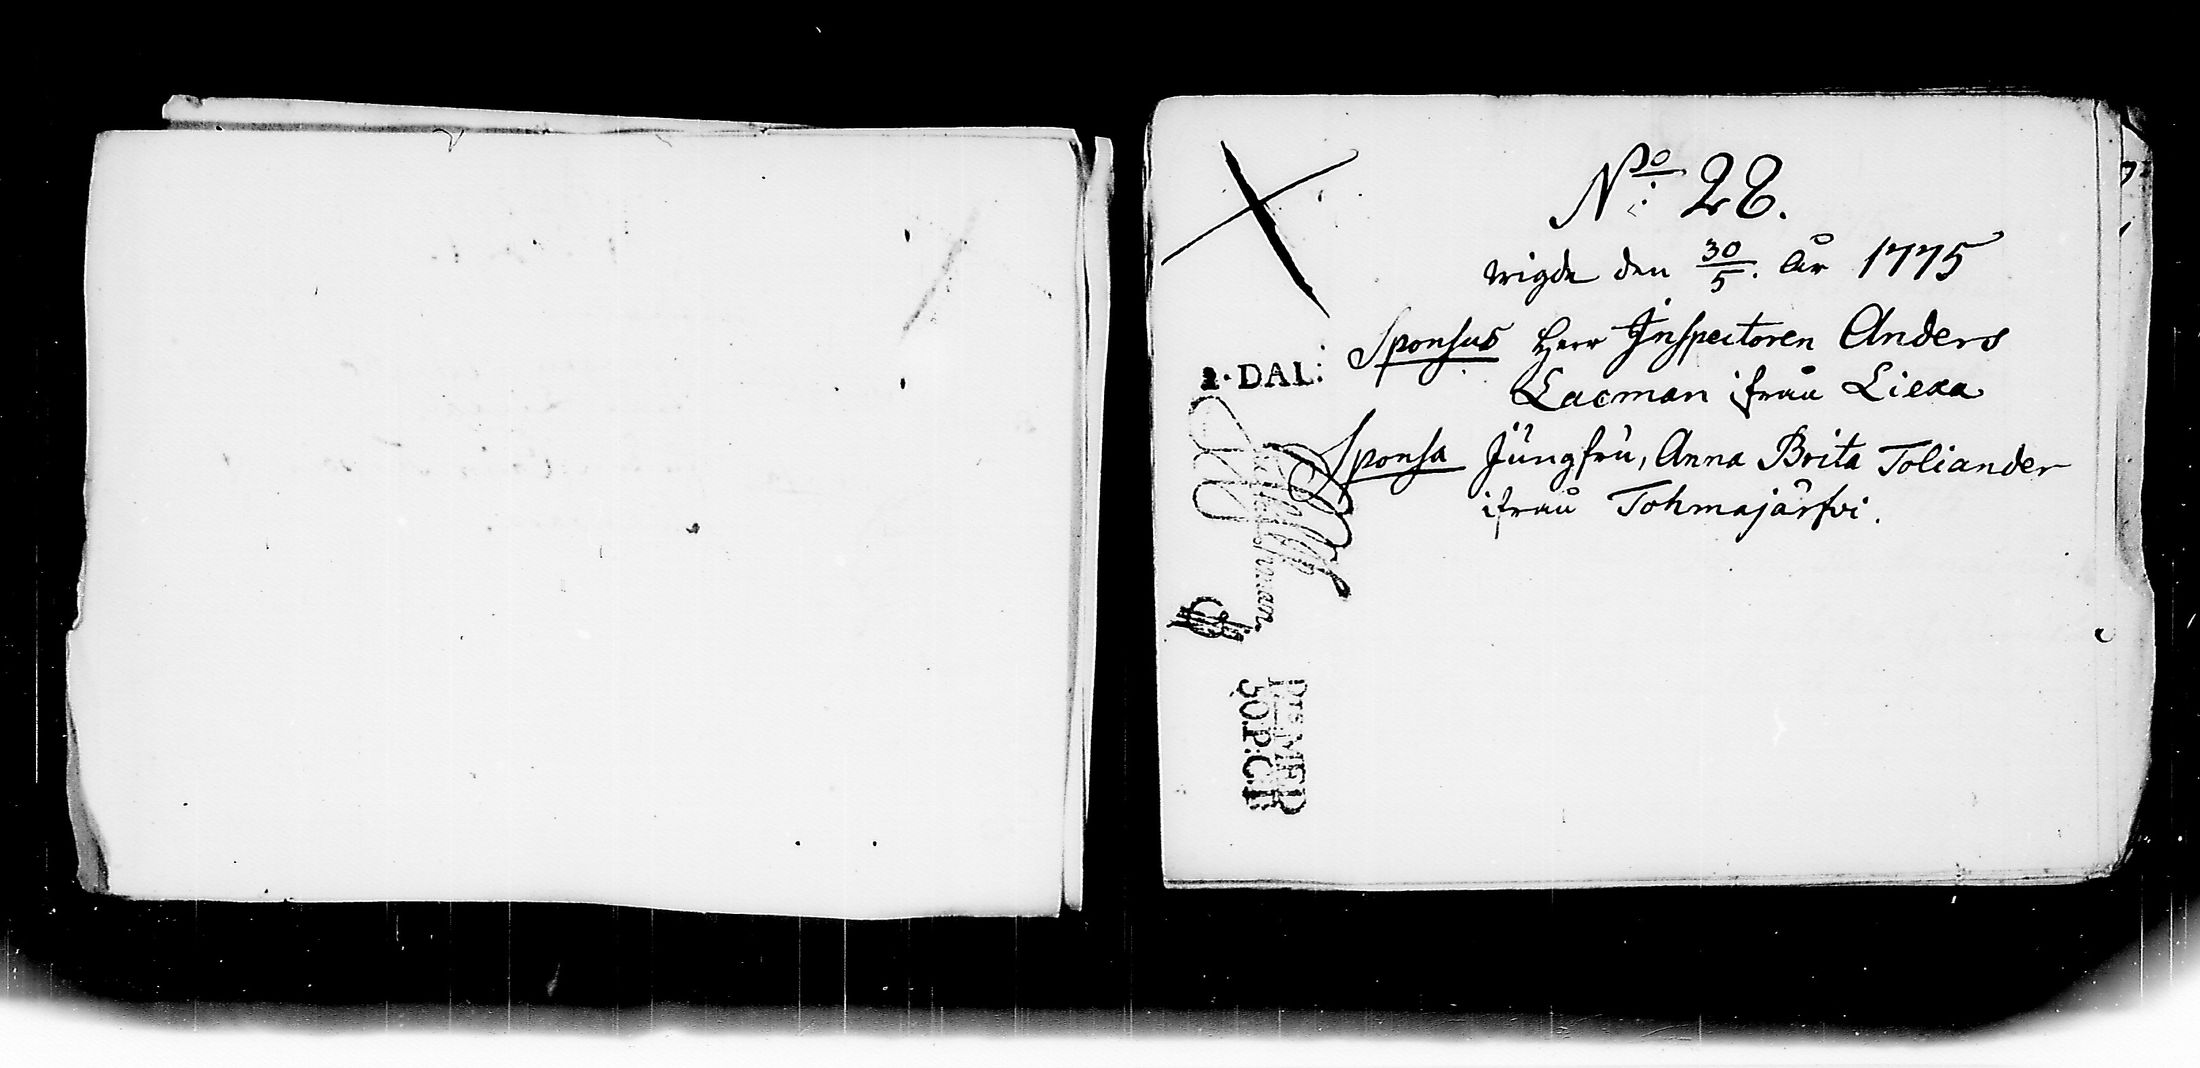 No: 28.
wigde den 30/5. År 1775
Sponsus Herr Inspectoren Anders
Lacman ifrån Liexa
Sponsa Jungfru, Anna Brita Toliander
ifrån Tohmajärfvi.
2·DAL: